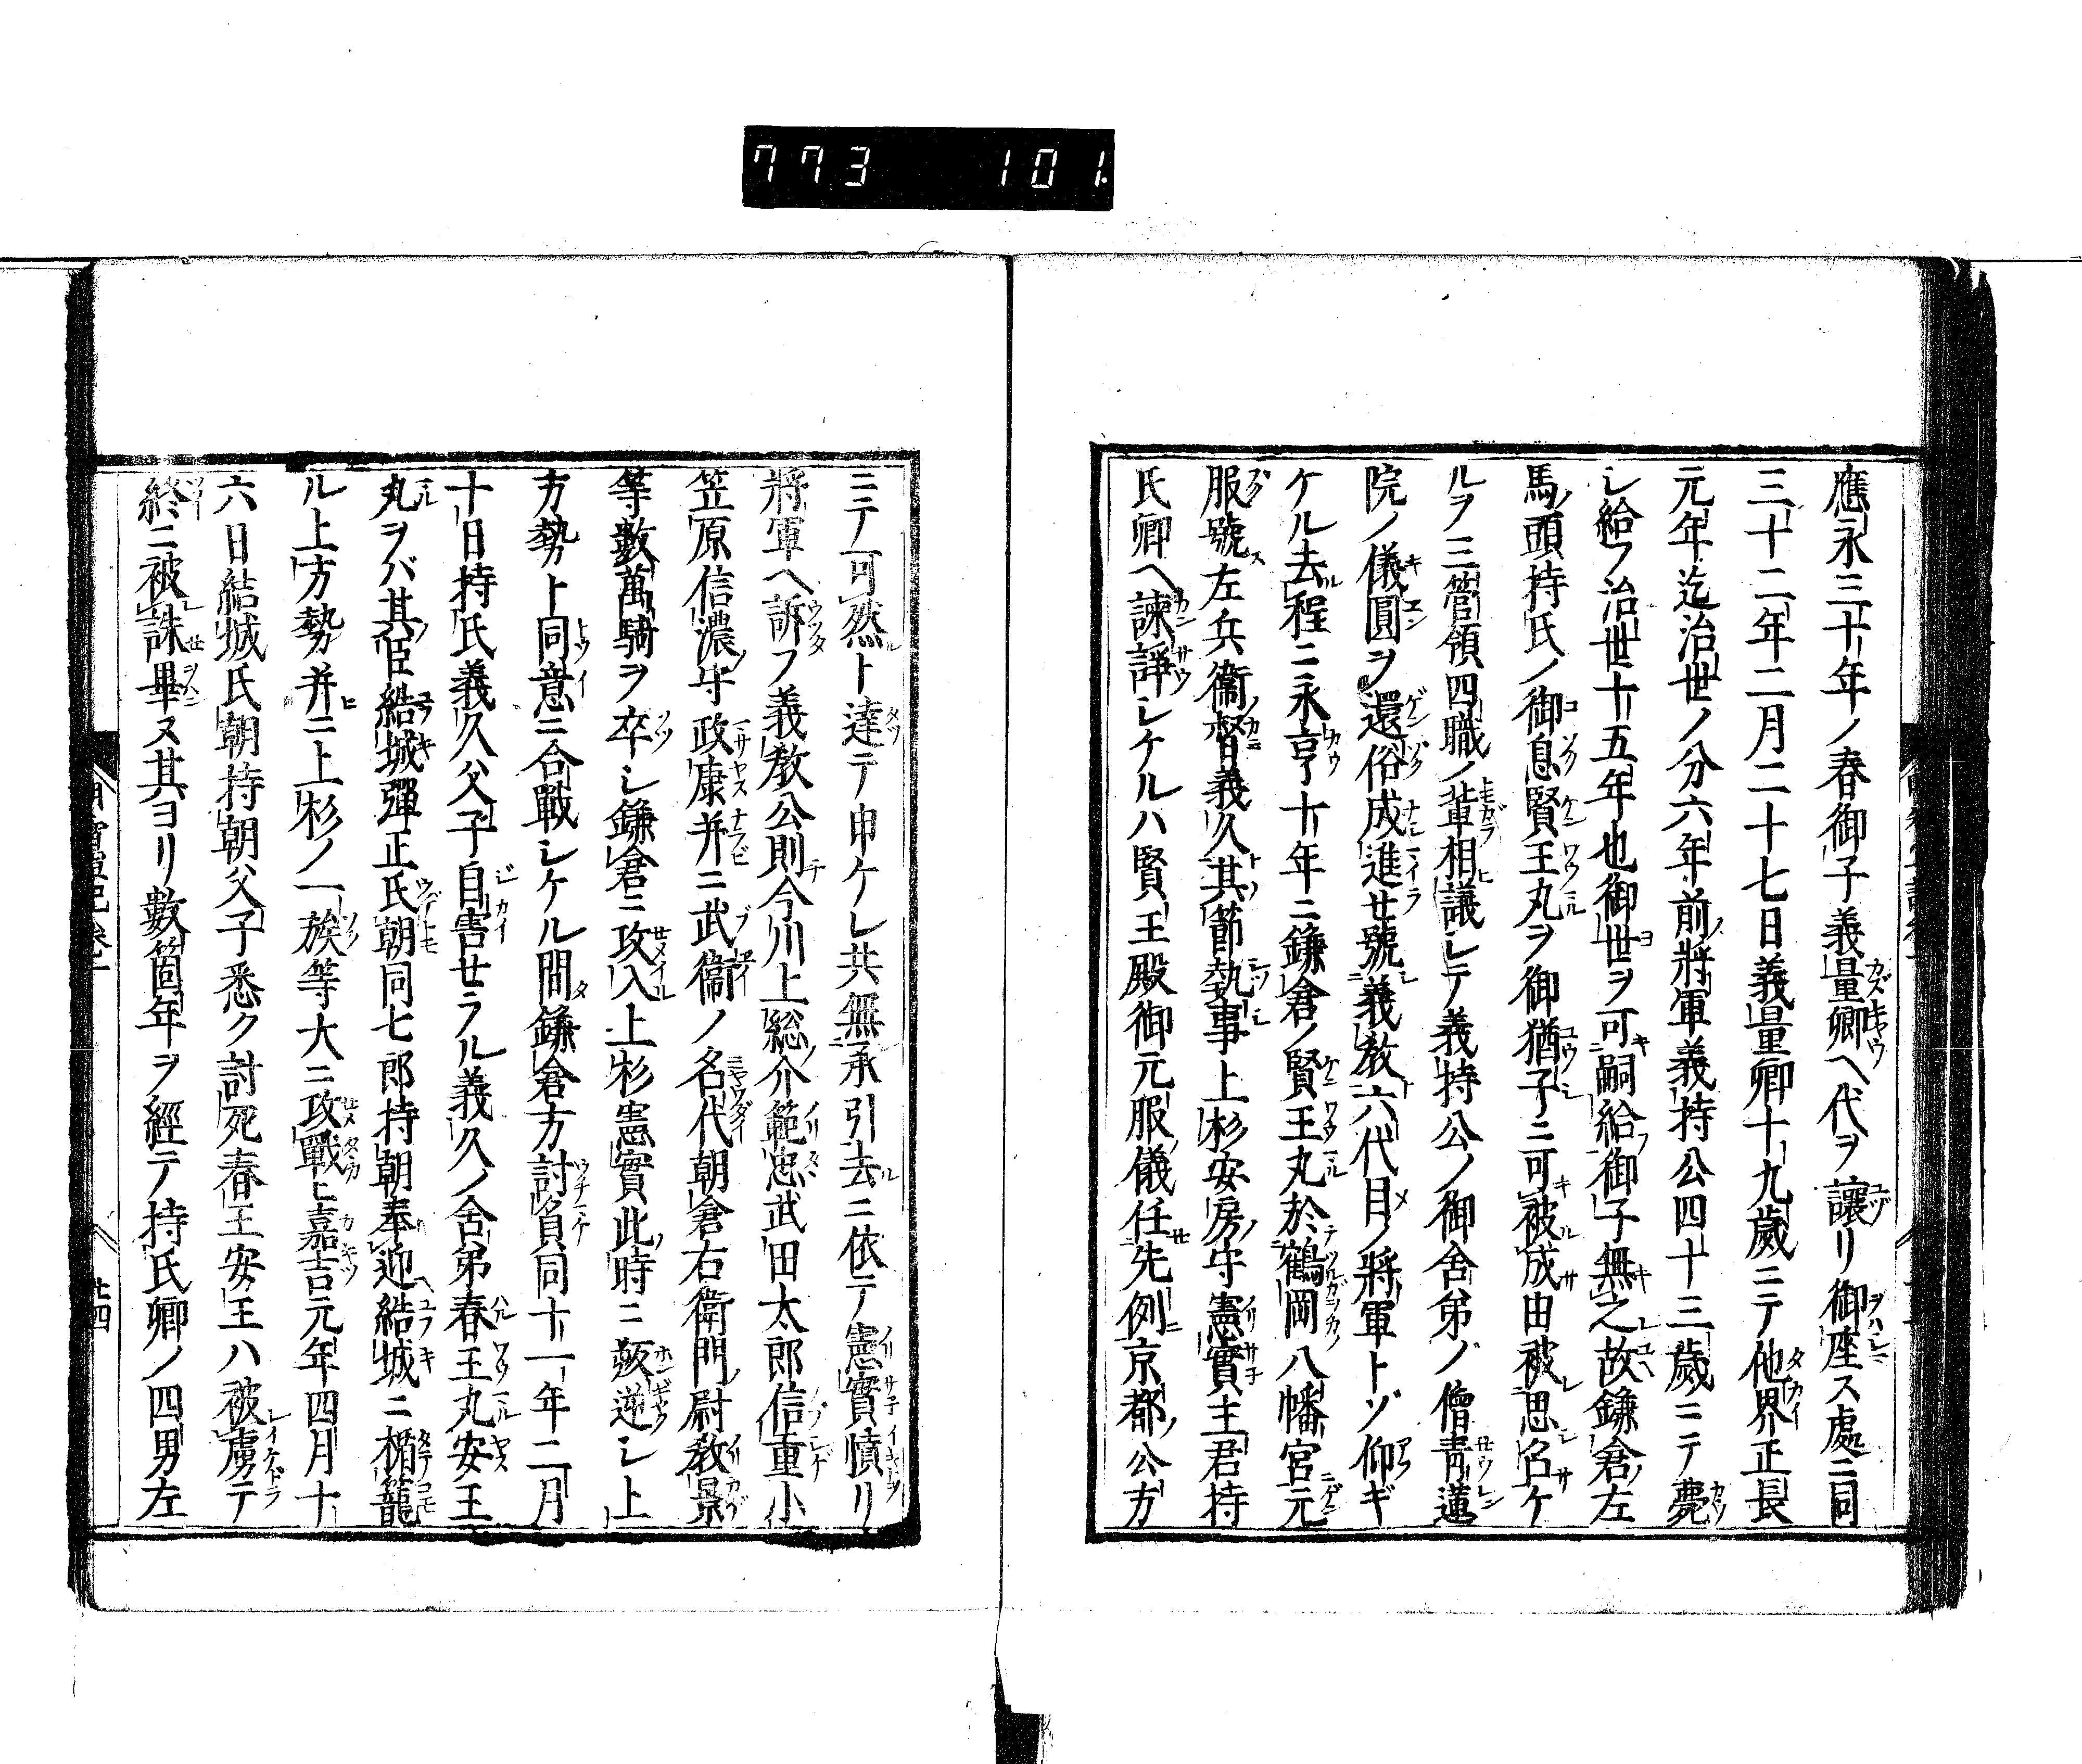 773 101
應永三十年ノ春御子義量卿ヘ代ヲ讓リ御座ス處ニ同
三十二年二月二十七日義量卿十九歲ニテ他界正長
元年迄治世ノ分六年前將軍義持公四十三歲ニテ薨
シ給フ治世十五年也御世ヲ可嗣給御子無之故鎌倉左
馬頭持氏ノ御息賢王丸ヲ御猶子ニ可被成由被思召ケ
ルヲ三管領四職ノ輩相議シテ義持公ノ御舍弟ノ僧青蓮
院ノ儀圓ヲ還俗成進セ號義教六代目ノ將軍トゾ仰ギ
ケル去程ニ永亨十年ニ鎌倉ノ賢王丸於鶴岡八幡宮元
服號左兵衞督義久其節執事上杉安房守憲實主君持
氏卿ヘ諫諍シケルハ賢王殿御元服儀任先例京都ノ公方
ニテ可然ト達テ申ケレ共無承引去ニ依テ憲實憤リ
將軍ヘ訴フ義教公則今川上総介範忠武田太郎信重小
笠原信濃守政康并ニ武衞ノ名代朝倉右衛門尉教景
等數萬騎ヲ卒シ鎌倉ニ攻入上杉憲實此時ニ叛逆シ上
方勢ト同意ニ合戰シケル間鎌倉方討負同十一年二月
十日持氏義久父子自害セラル義久ノ舍弟春王丸安王
丸ヲバ其臣結城彈正氏朝同七郎持朝奉迎結城ニ楯籠
ル上方勢并ニ上杉ノ一族等大ニ攻戰上嘉吉元年四月十
六日結城氏朝持朝父子悉ク討死春王安王ハ被虜テ
終ニ被誅畢ヌ其ヨリ數箇年ヲ經テ持氏卿ノ四男左
廿四